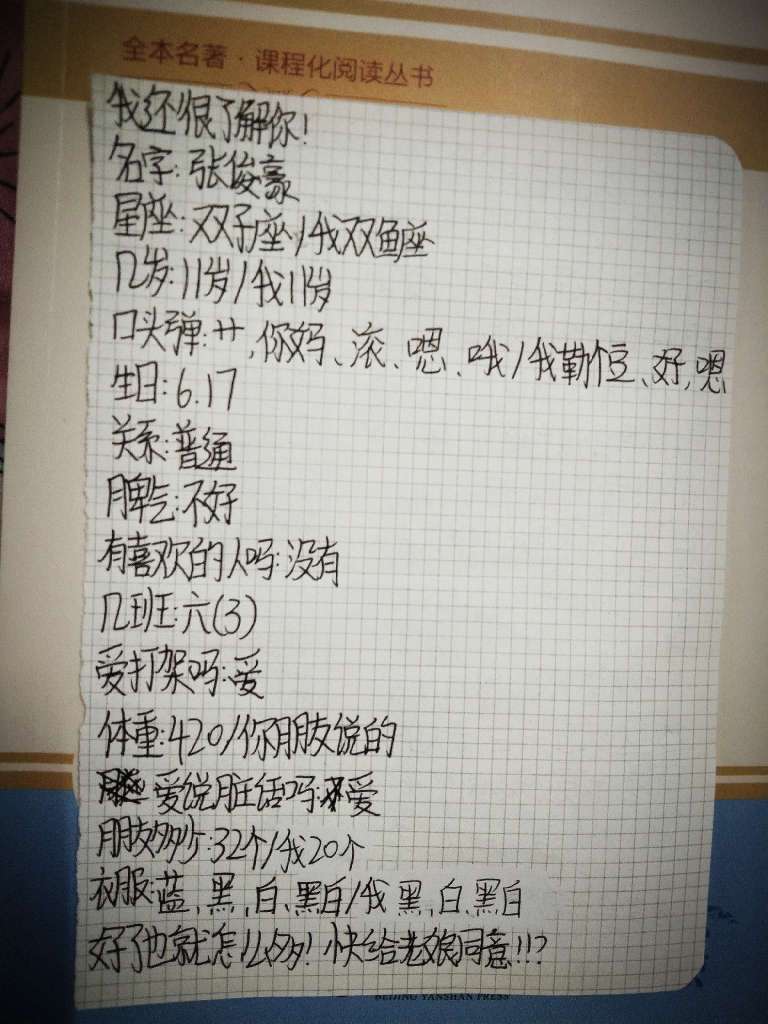 全本名著·课程化阅读丛书
我还很了解你!
名字:张俊豪
星座:双子座/我双鱼座
几岁:11岁/我11岁
口头弹:艹,你妈、滚、嗯、哦/我勒个豆、好,嗯
生日:6.17
关系:普通
脾气:不好
有喜欢的人吗:没有
几班:六(3)
爱打架吗:爱
体重:420/你朋友说的
爱说脏话吗:爱
朋友多少:32个/我20个
衣服:蓝,黑,白、黑白/我黑,白、黑白
好了也就怎么多!快给老娘同意!!?
BEIJING YANSHAN PRESS